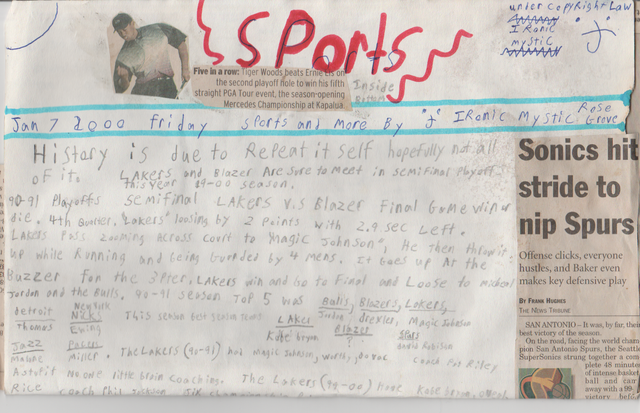 SPORTS
under copyright Law
IRonic
mystic
"j"
Five in a row: Tiger Woods beats Ernie Els on
the second playoff hole to win his fifth
straight PGA Tour event, the season-opening
Mercedes Championship at Kapalua
Inside
Bottom
Jan 7 2000 Friday Sports and More By "j" IRonic Mystic Rose
Grove
History is due to Repeat it self hopefully not all
of it. LAKERS and Blazer Are Sure to Meet in Semifinal Playoff
this year 99-00 season.
90-91 Playoffs Semifinal LAKERS V.S Blazer Final Game win or
die. 4th Quarter. "Lakers" loosing by 2 Points with 2.9 sec Left.
Lakers Pass zooming Across court to "Magic Johnson", He then throw it
up while Running and being Guarded by 4 mens. It goes up At the
Buzzer for the 3Pter. LAKERS win and Go to Final and Loose to micheal
Jordan and the Bulls. 90-91 season Top 5 was Bulls, Blazers, Lakers,
Jordan, drexler, Magic Johnson
detroit New York
Thomas Nicks
Ewing
This season best season teams LAKer Blazer Spurs
Kobe bryan ? David Robison
Jazz Pacer
Malone Miller. The Lakers (90-91) had Magic Johnson, worthy, Coach Pat Riley
No one little brain coaching. The Lakers (99-00) have Kobe brian,
Rice Coach Phil Jackson
Sonics hit
stride to
nip Spurs
Offense clicks, everyone
hustles, and Baker even
makes key defensive play
BY FRANK HUGHES
THE NEWS TRIBUNE
SAN ANTONIO – It was, by far, the
best victory of the season.
On the road, facing the world cham-
pion San Antonio Spurs, the Seattle
SuperSonics strung together a com-
plete 48 minutes
of intense basket-
ball and came
away with a 99-
victory